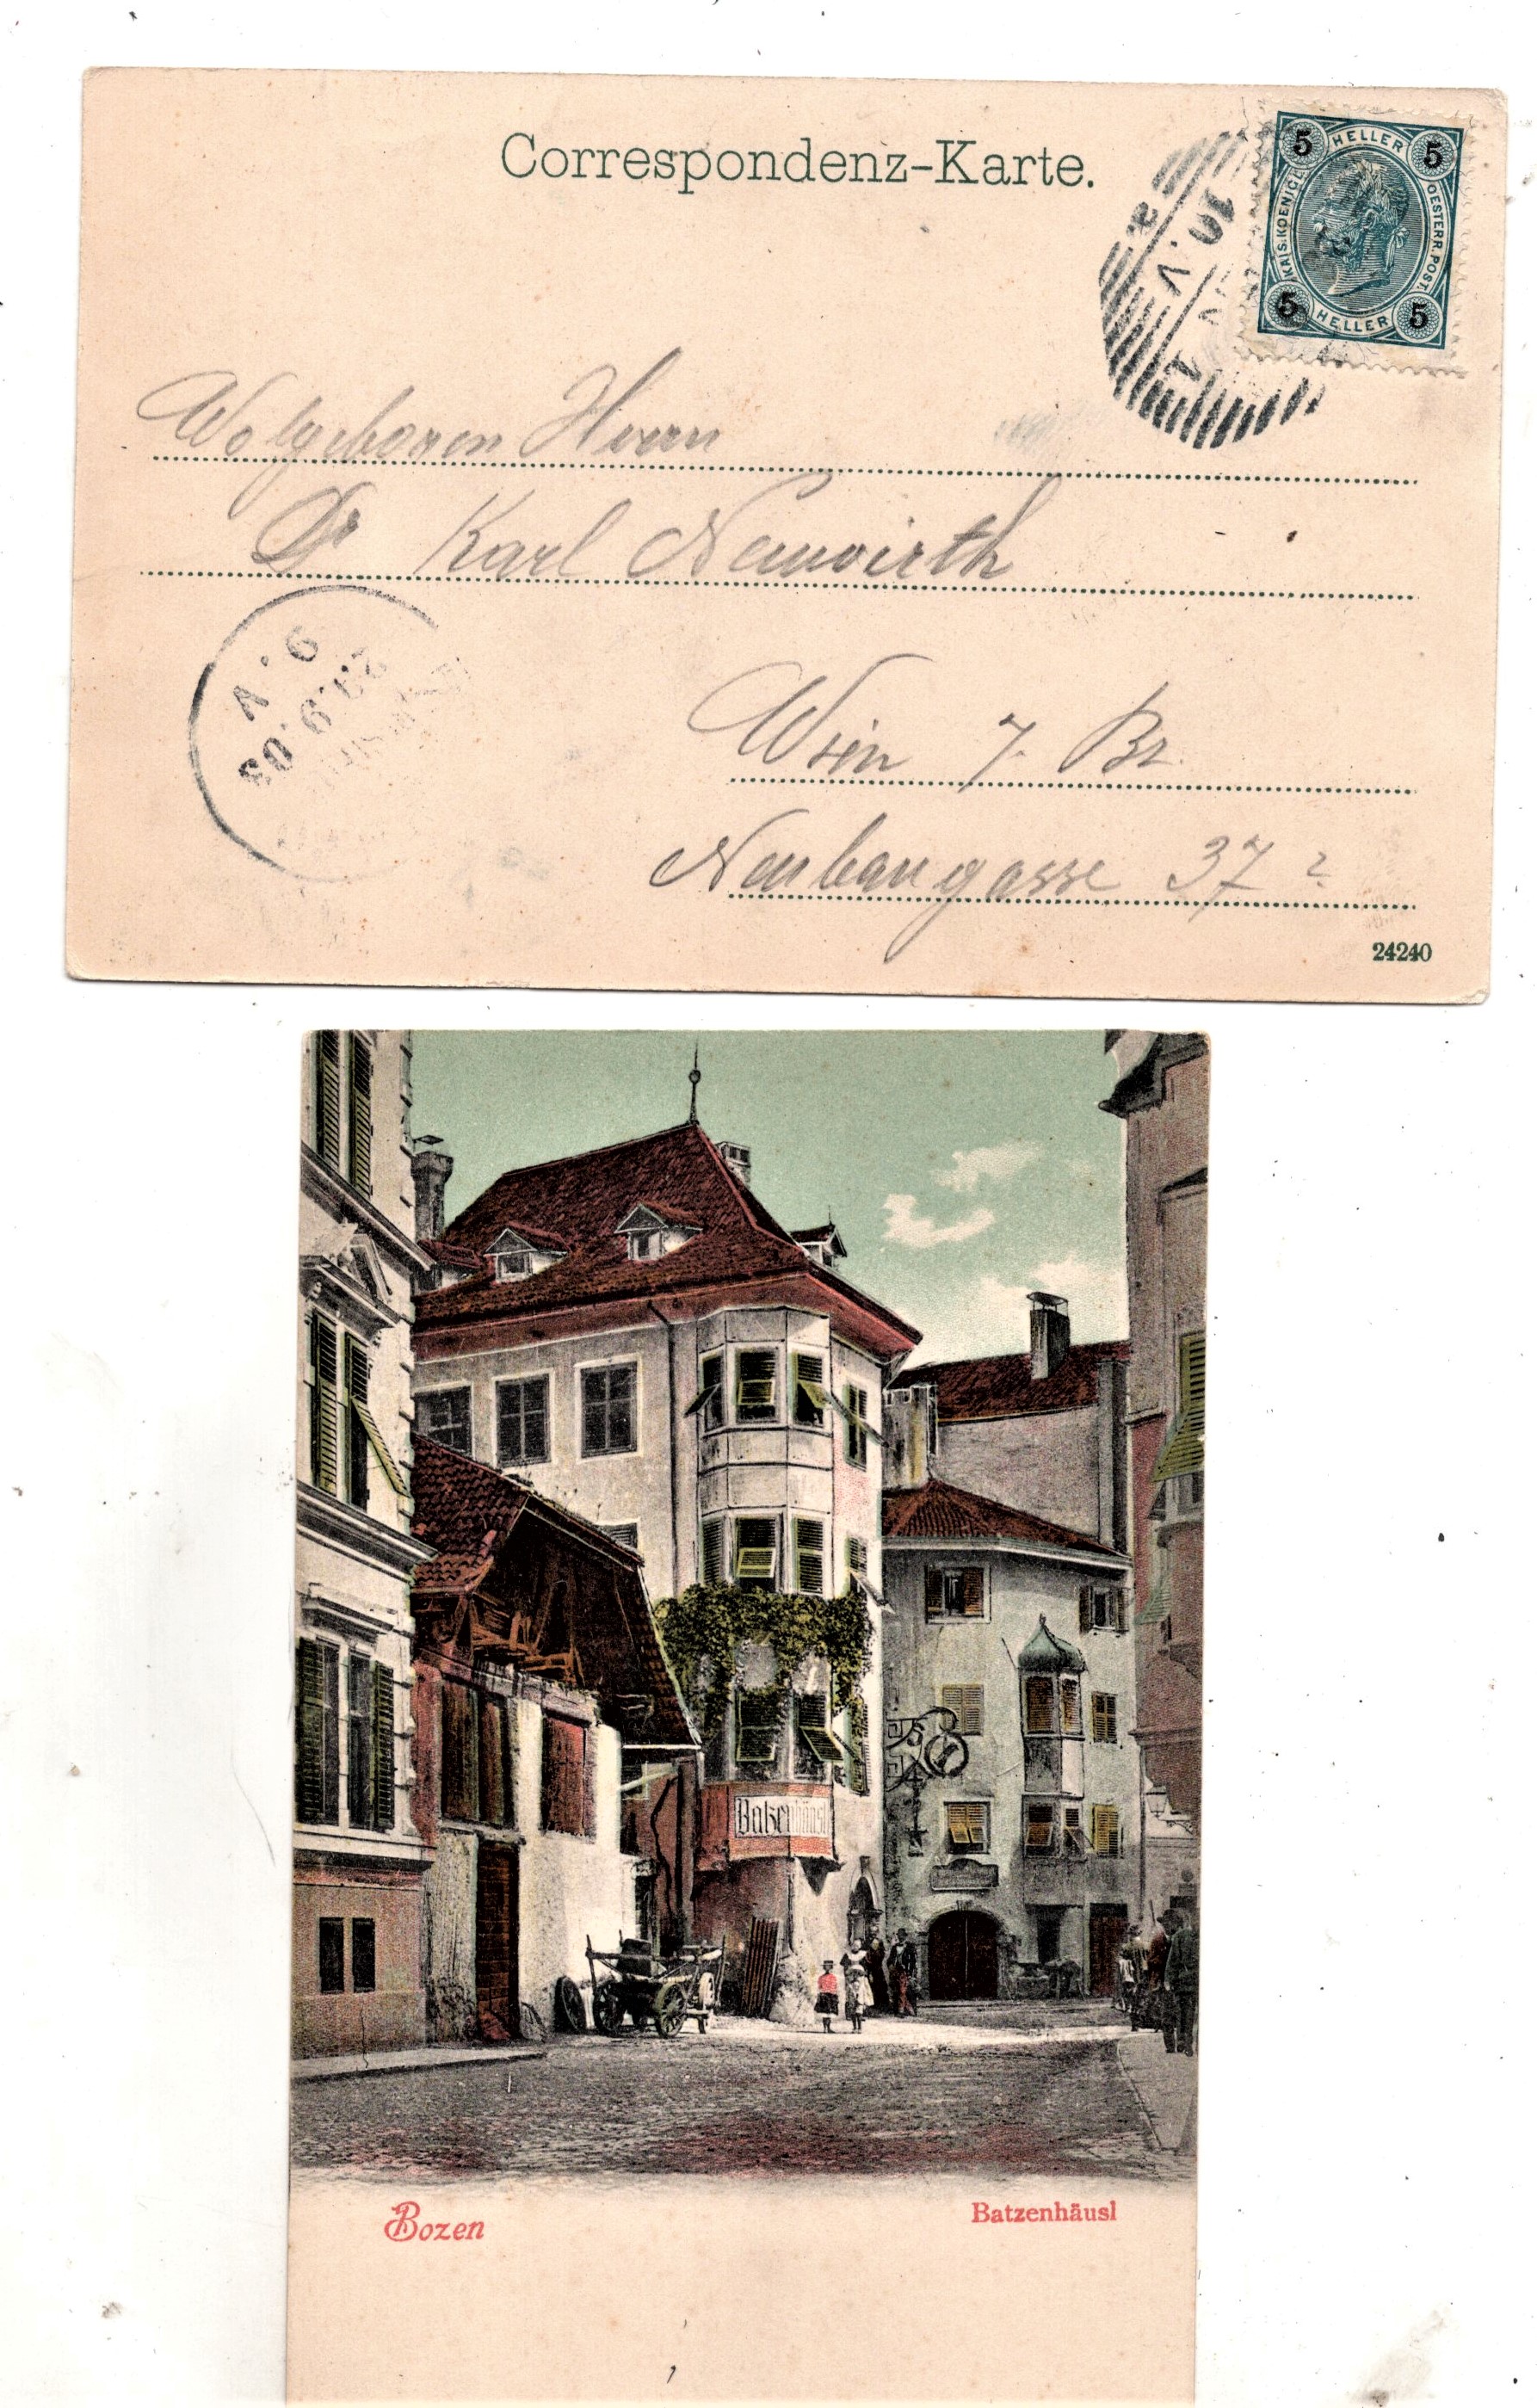 Correspondenz-Karte.
5 HELLER 5
KAIS. KOENIGL. OESTERR. POST.
5 HELLER 5
10. V
a
1
Wolgeboren Herrn
Dr Karl Neuwirth
9. V
23.9.03
Wien 7. Bz.
Neubaugasse 37
24240
Batzenhäusl
Bozen
Batzenhäusl